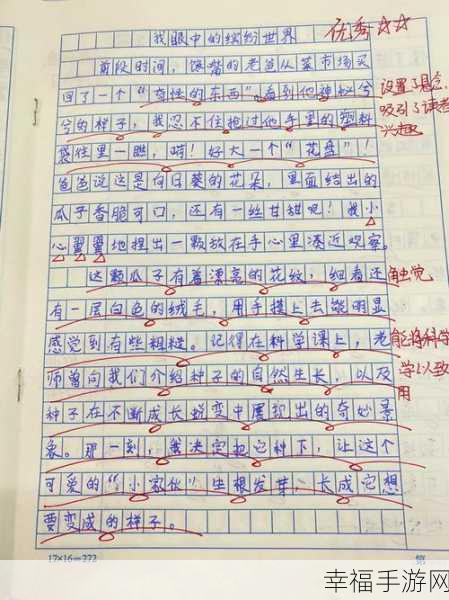 我眼中的缤纷世界
优秀☆☆
前段时间，馋嘴的老爸从菜市场买
回了一个“奇怪的东西”。看到他神秘兮
设置了悬念，
兮的样子，我忍不住抢过他手里的塑料
吸引了读者
兴趣
袋往里一瞧，嗬！好大一个“花盘”！
爸爸说这是向日葵的花朵，里面结出的
瓜子香脆可口，还有一丝甘甜呢！我小
心翼翼地捏出一颗放在手心里凑近观察。
这颗瓜子有着漂亮的花纹，细看还
触觉
有一层白色的绒毛，用手摸上去能明显
感觉到有些粗糙。记得在科学课上，老
能将科学
师曾向我们介绍种子的自然生长，以及
学以致
用
种子在不断成长蜕变中展现出的奇妙景
象。那一刻，我决定把它种下，让这个
可爱的“小家伙”生根发芽，长成它想
要变成的样子。
17×16=272
第
幸福手游网